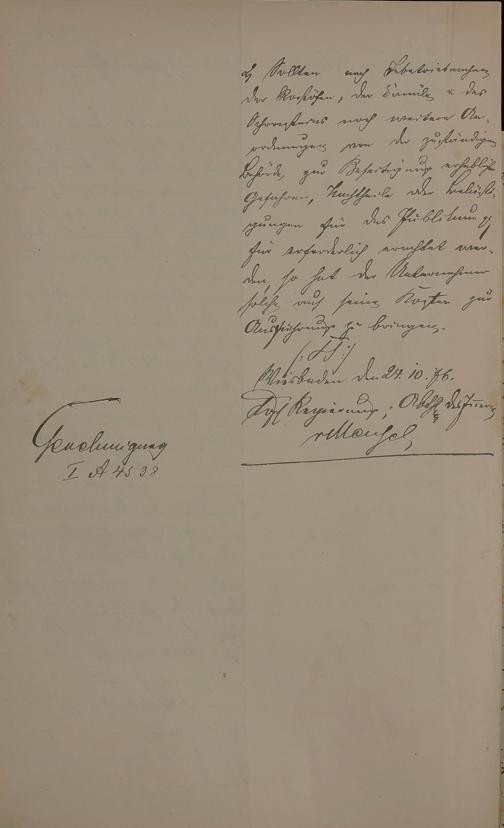 d, Sollten nach Inbetriebnahme
der Rostöfen, der Kanäle u des
Schornsteins noch weitere An-
ordnungen von der zuständigen
Behörde zur Beseitigung erheblicher
Gefahren, Nachtheile oder Belästi-
gungen für das Publikum
für erforderlich erachtet wer-
den, so hat der Unternehmer
solche auf seine Kosten zur
Ausführung zu bringen.
Wiesbaden den 24. 10. 76.
Kgl Regierung, Abth des Innern
Genehmigung
I A 4538